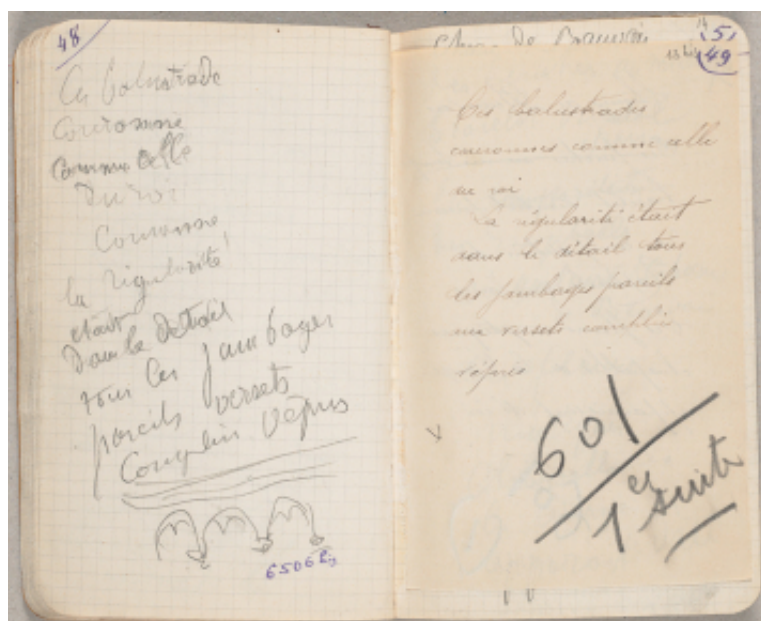 48
Ces balustrade
Couronné
Comme celle
Du roi
Couronne
la régularité
était
Dans le détail
tous les jambages
pareils versets
Complies Vêpres
6506 bis
14
51
13 bis
49
Ces balustrades
couronnes comme celle
du roi
La régularité était
dans le détail tous
les jambages pareils
aux versets complies
vêpres
601
1ere suite